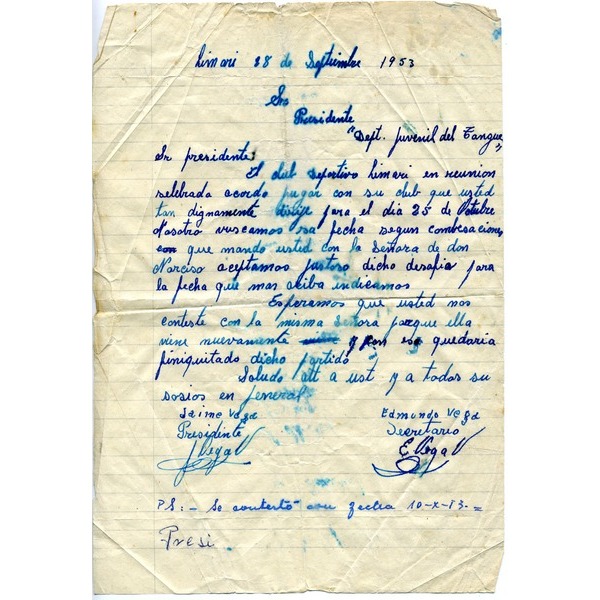 Limari 28 de Septiembre 1953
Sr
Presidente
"Dept. juvenil del Tangue"
Sr presidente:
El club Deportivo Limari en reunion
selebrada acordo jugar con su club que usted
tan dignamente dirije para el dia 25 de Octubre
Nosotro vuscamos esa fecha segun conversaciones
que mando usted con la Señora de don
Narciso aceptamos justoso dicho desafio para
la fecha que mas ariba indicamos
Esperamos que usted nos
conteste con la misma señora porque ella
viene nuevamente y con eso quedaria
finiquitado dicho partido
Saludo att a ust y a todos su
sosios en jeneral
Jaime Vega Edmundo Vega
Presidente Secretario
J Vega V E Vega V
PS: - Se contestó con fecha 10-X-53. =
Presi